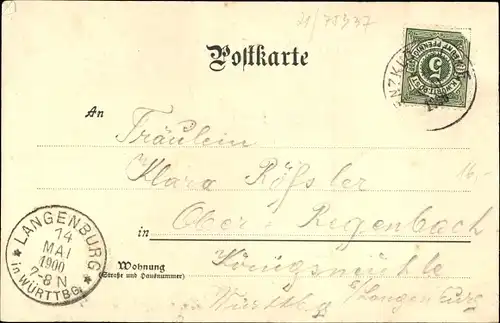 21/78337
Postkarte
An
Fräulein
Klara Rößler
16,-
in Ober-Regenbach
Wohnung
(Straße und Hausnummer)
Königsmühle
Württbg b/Langenburg
5
LANGENBURG
14
MAI
1900
7-8 N
in WÜRTTBG.